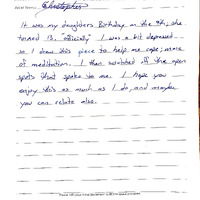 Christopher
It was my daughters Birthday on the 9th, she
turned 13. "officially" I was a bit depressed
so I drew this piece to help me cope; more
of meditation. I then swatched off the open
spots that spoke to me. I hope you
enjoy this as much as I do, and maybe
you can relate also.